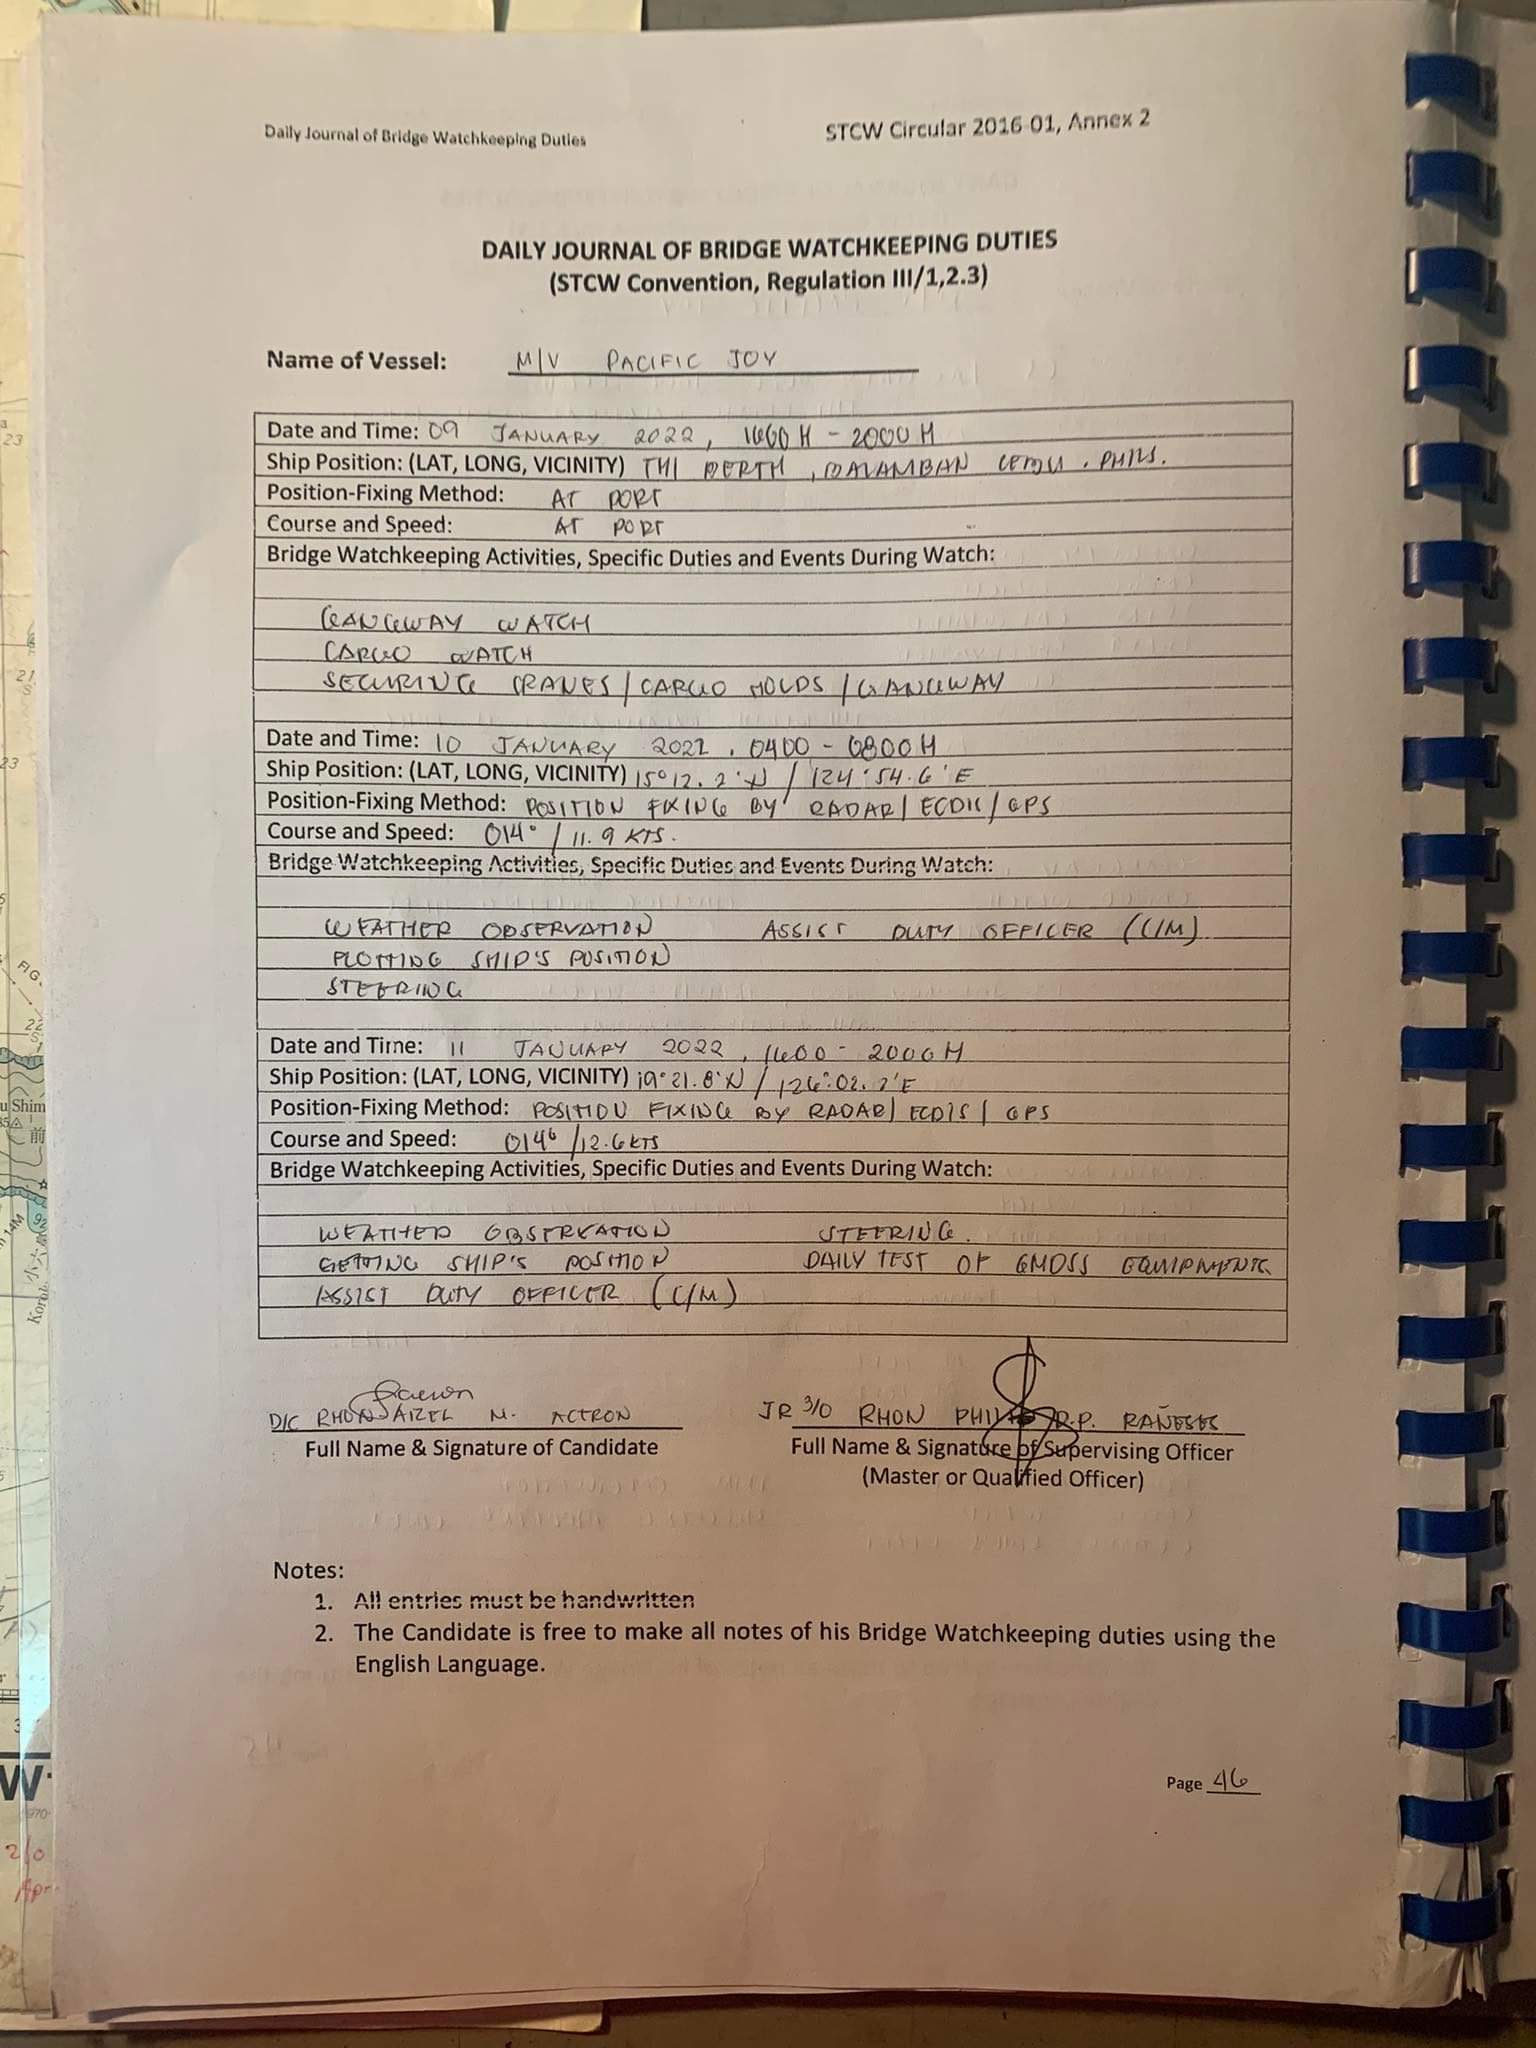 Daily Journal of Bridge Watchkeeping Duties
STCW Circular 2016-01, Annex 2
DAILY JOURNAL OF BRIDGE WATCHKEEPING DUTIES
(STCW Convention, Regulation III/1,2.3)
Name of Vessel: M/V PACIFIC JOY
Date and Time: 09 JANUARY 2022, 1600H - 2000H
Ship Position: (LAT, LONG, VICINITY) THI BERTH, BALAMBAN CEBU, PHILS.
Position-Fixing Method: AT PORT
Course and Speed: AT PORT
Bridge Watchkeeping Activities, Specific Duties and Events During Watch:
GANGWAY WATCH
CARGO WATCH
SECURING CRANES/CARGO HOLDS/GANGWAY
Date and Time: 10 JANUARY 2022, 0400 - 0800H
Ship Position: (LAT, LONG, VICINITY) 15°12.2'N / 124°54.6'E
Position-Fixing Method: POSITION FIXING BY RADAR/ECDIS/GPS
Course and Speed: 014°/11.9 KTS.
Bridge Watchkeeping Activities, Specific Duties and Events During Watch:
WEATHER OBSERVATION ASSIST DUTY OFFICER (C/M)
PLOTTING SHIP'S POSITION
STEERING
Date and Time: 11 JANUARY 2022, 1600 - 2000H
Ship Position: (LAT, LONG, VICINITY) 19°21.8'N / 126°02.2'E
Position-Fixing Method: POSITION FIXING BY RADAR/ECDIS/GPS
Course and Speed: 014°/12.6 KTS
Bridge Watchkeeping Activities, Specific Duties and Events During Watch:
WEATHER OBSERVATION STEERING.
GETTING SHIP'S POSITION DAILY TEST OF GMDSS EQUIPMENTS
ASSIST DUTY OFFICER (C/M)
D/C RHON AIZEL M. ACTRON
JR 3/O RHON R.P. RAÑESES
Full Name & Signature of Candidate
Full Name & Signature of Supervising Officer
(Master or Qualified Officer)
Notes:
1. All entries must be handwritten
2. The Candidate is free to make all notes of his Bridge Watchkeeping duties using the
English Language.
Page 46